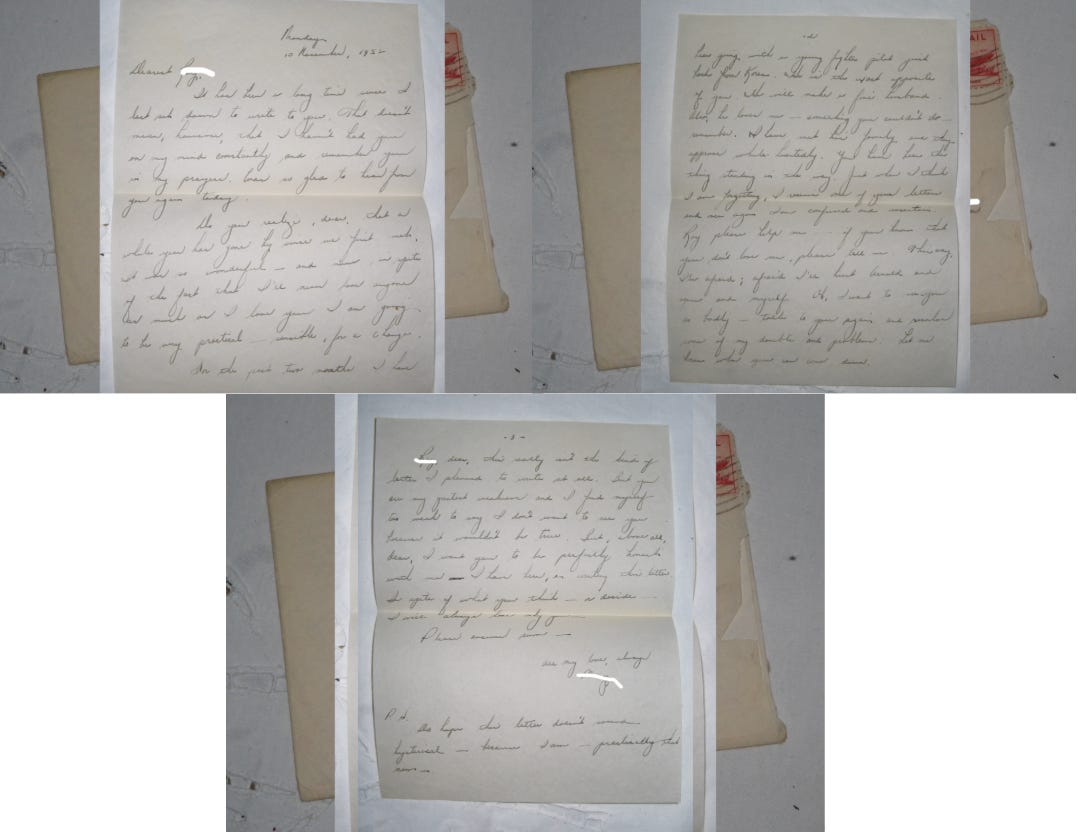 Monday,
10 November, 1952
Dearest
It has been a long time since I
last sat down to write to you. That doesn't
mean, however, that I haven't had you
on my mind constantly and remember you
in my prayers. Was so glad to hear from
you again today.
Do you realize, dear, that a
whole year has gone by since we first met.
It was so wonderful — and now in spite
of the fact that I've never loved anyone
as much as I love you I am going
to be very practical — sensible, for a change.
In the past two months I have
-2-
been going with a young fighter pilot just
back from Korea. He's the exact opposite
of you. He will make a fine husband.
Also, he loves me — something you couldn't do —
remember. I have met his family and they
approve whole heartedly. You have been the
thing standing in the way. Just when I think
I am forgetting, I receive one of your letters
and once again I'm confused and uncertain.
Roy please help me — if you know that
you don't love me, please tell me.
I'm afraid; afraid I'll hurt
you and myself. Oh, I want to see you
so badly — talk to you again and resolve
some of my doubts and problems. Let me
know when you can come down.
-3-
dear, this really isn't the kind of
letter I planned to write at all. But you
are my greatest weakness and I find myself
too weak to say I don't want to see you
because it wouldn't be true. But, above all,
dear, I want you to be perfectly honest
with me — I have been, in writing this letter
In spite of what you think — or decide —
I will always love only you —
Please answer soon —
All my love, always
P.S.
Do hope this letter doesn't sound
hysterical — because I am — practically that
now —
AIL